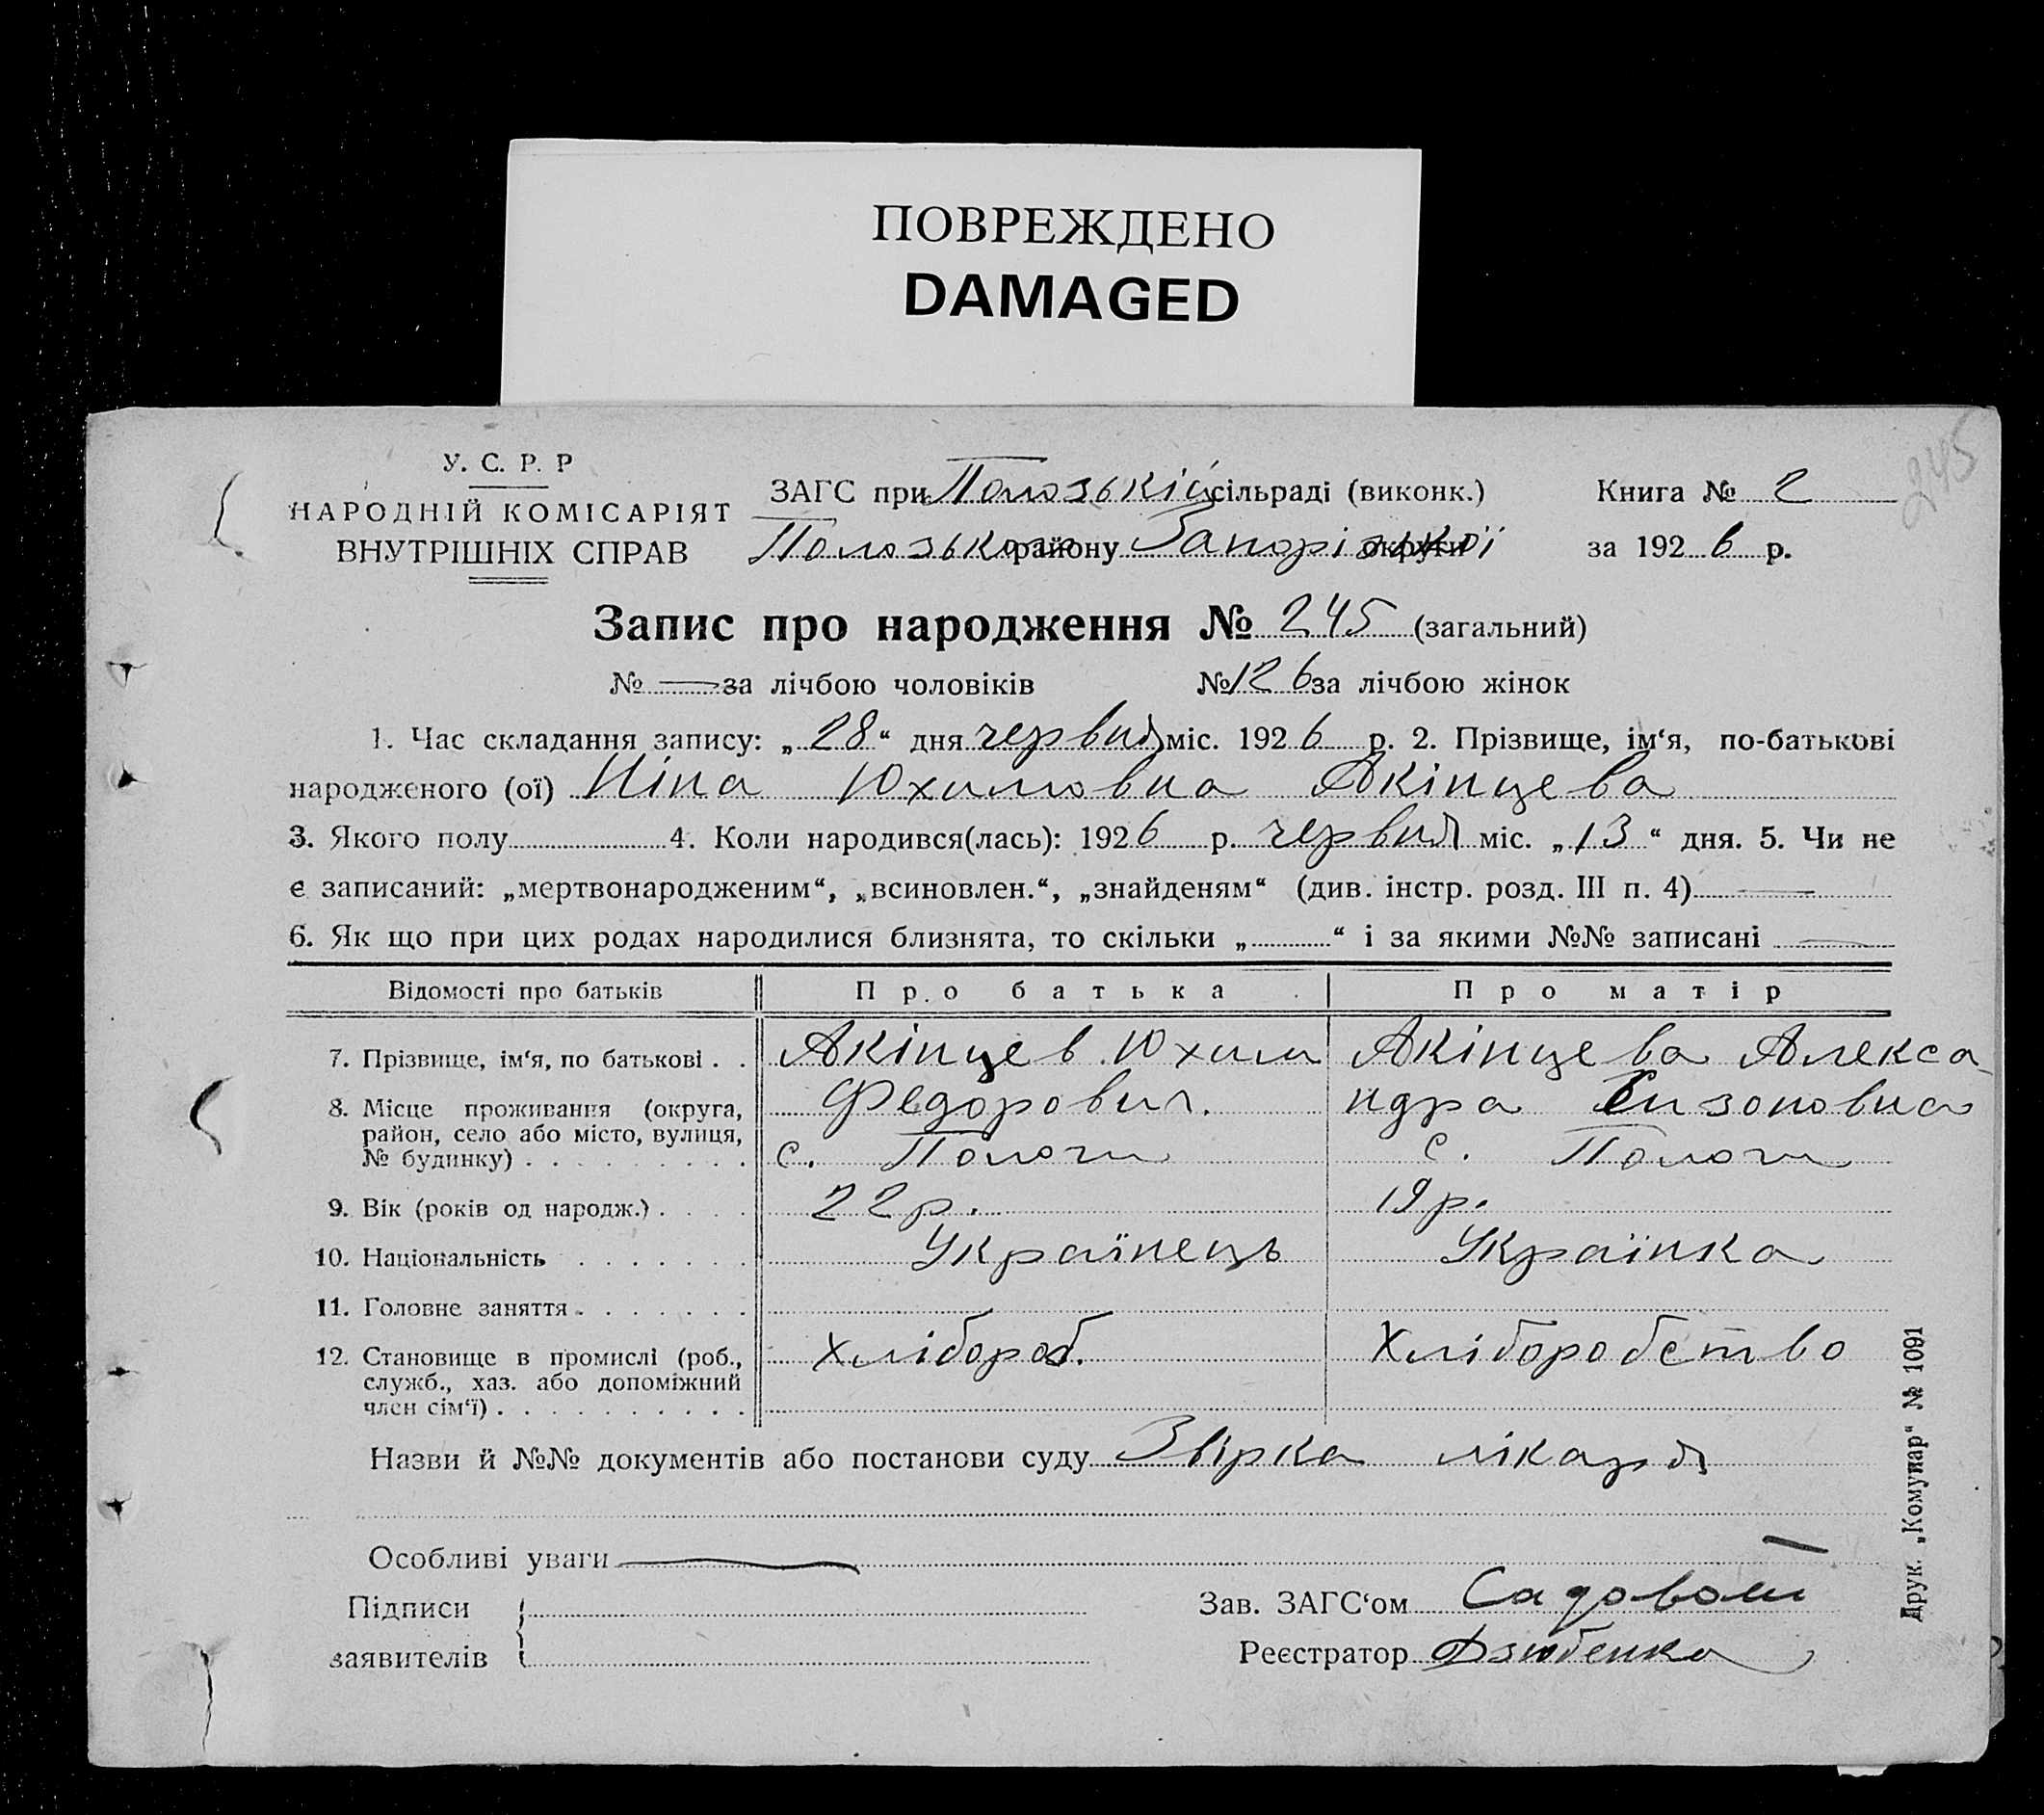 ПОВРЕЖДЕНО
DAMAGED
245
У. С. Р. Р
НАРОДНІЙ КОМІСАРІЯТ
ВНУТРІШНІХ СПРАВ
ЗАГС при Пологській сільраді (виконк.)
Пологського району Запорізької округи
Книга № 2
за 1926 р.
Запис про народження № 245 (загальний)
№ — за лічбою чоловіків № 126 за лічбою жінок
1. Час складання запису: „28“ дня червня міс. 1926 р. 2. Прізвище, ім‘я, по-батькові
народженого (ої) Ніна Юхимовна Акінцева
3. Якого полу 4. Коли народився(лась): 1926 р. червня міс. „13“ дня. 5. Чи не
є записаний: „мертвонародженим“, „всиновлен.“, „знайденям“ (див. інстр. розд. III п. 4) —
6. Як що при цих родах народилися близнята, то скільки „ “ і за якими №№ записані —
Відомості про батьків Про батька Про матір
7. Прізвище, ім‘я, по батькові . . Акінцев Юхим Акінцева Алекса
Федорович. ндра
8. Місце проживання (округа,
район, село або місто, вулиця,
№ будинку) . . . . . . . . . с. Пологи с. Пологи
9. Вік (років од народж.) . . . . 22 р. 19 р.
10. Національність . . . . . . . Українець Українка
11. Головне заняття . . . . . . .
12. Становище в промислі (роб.,
служб., хаз. або допоміжний
член сім‘ї) . . . . . . . . . . хлібороб. Хліборобство
Назви й №№ документів або постанови суду Звірка лікаря
Особливі уваги —
Підписи
заявителів
Зав. ЗАГС‘ом Садовой
Реєстратор Дзюбенко
Друк. „Комунар“ № 1091